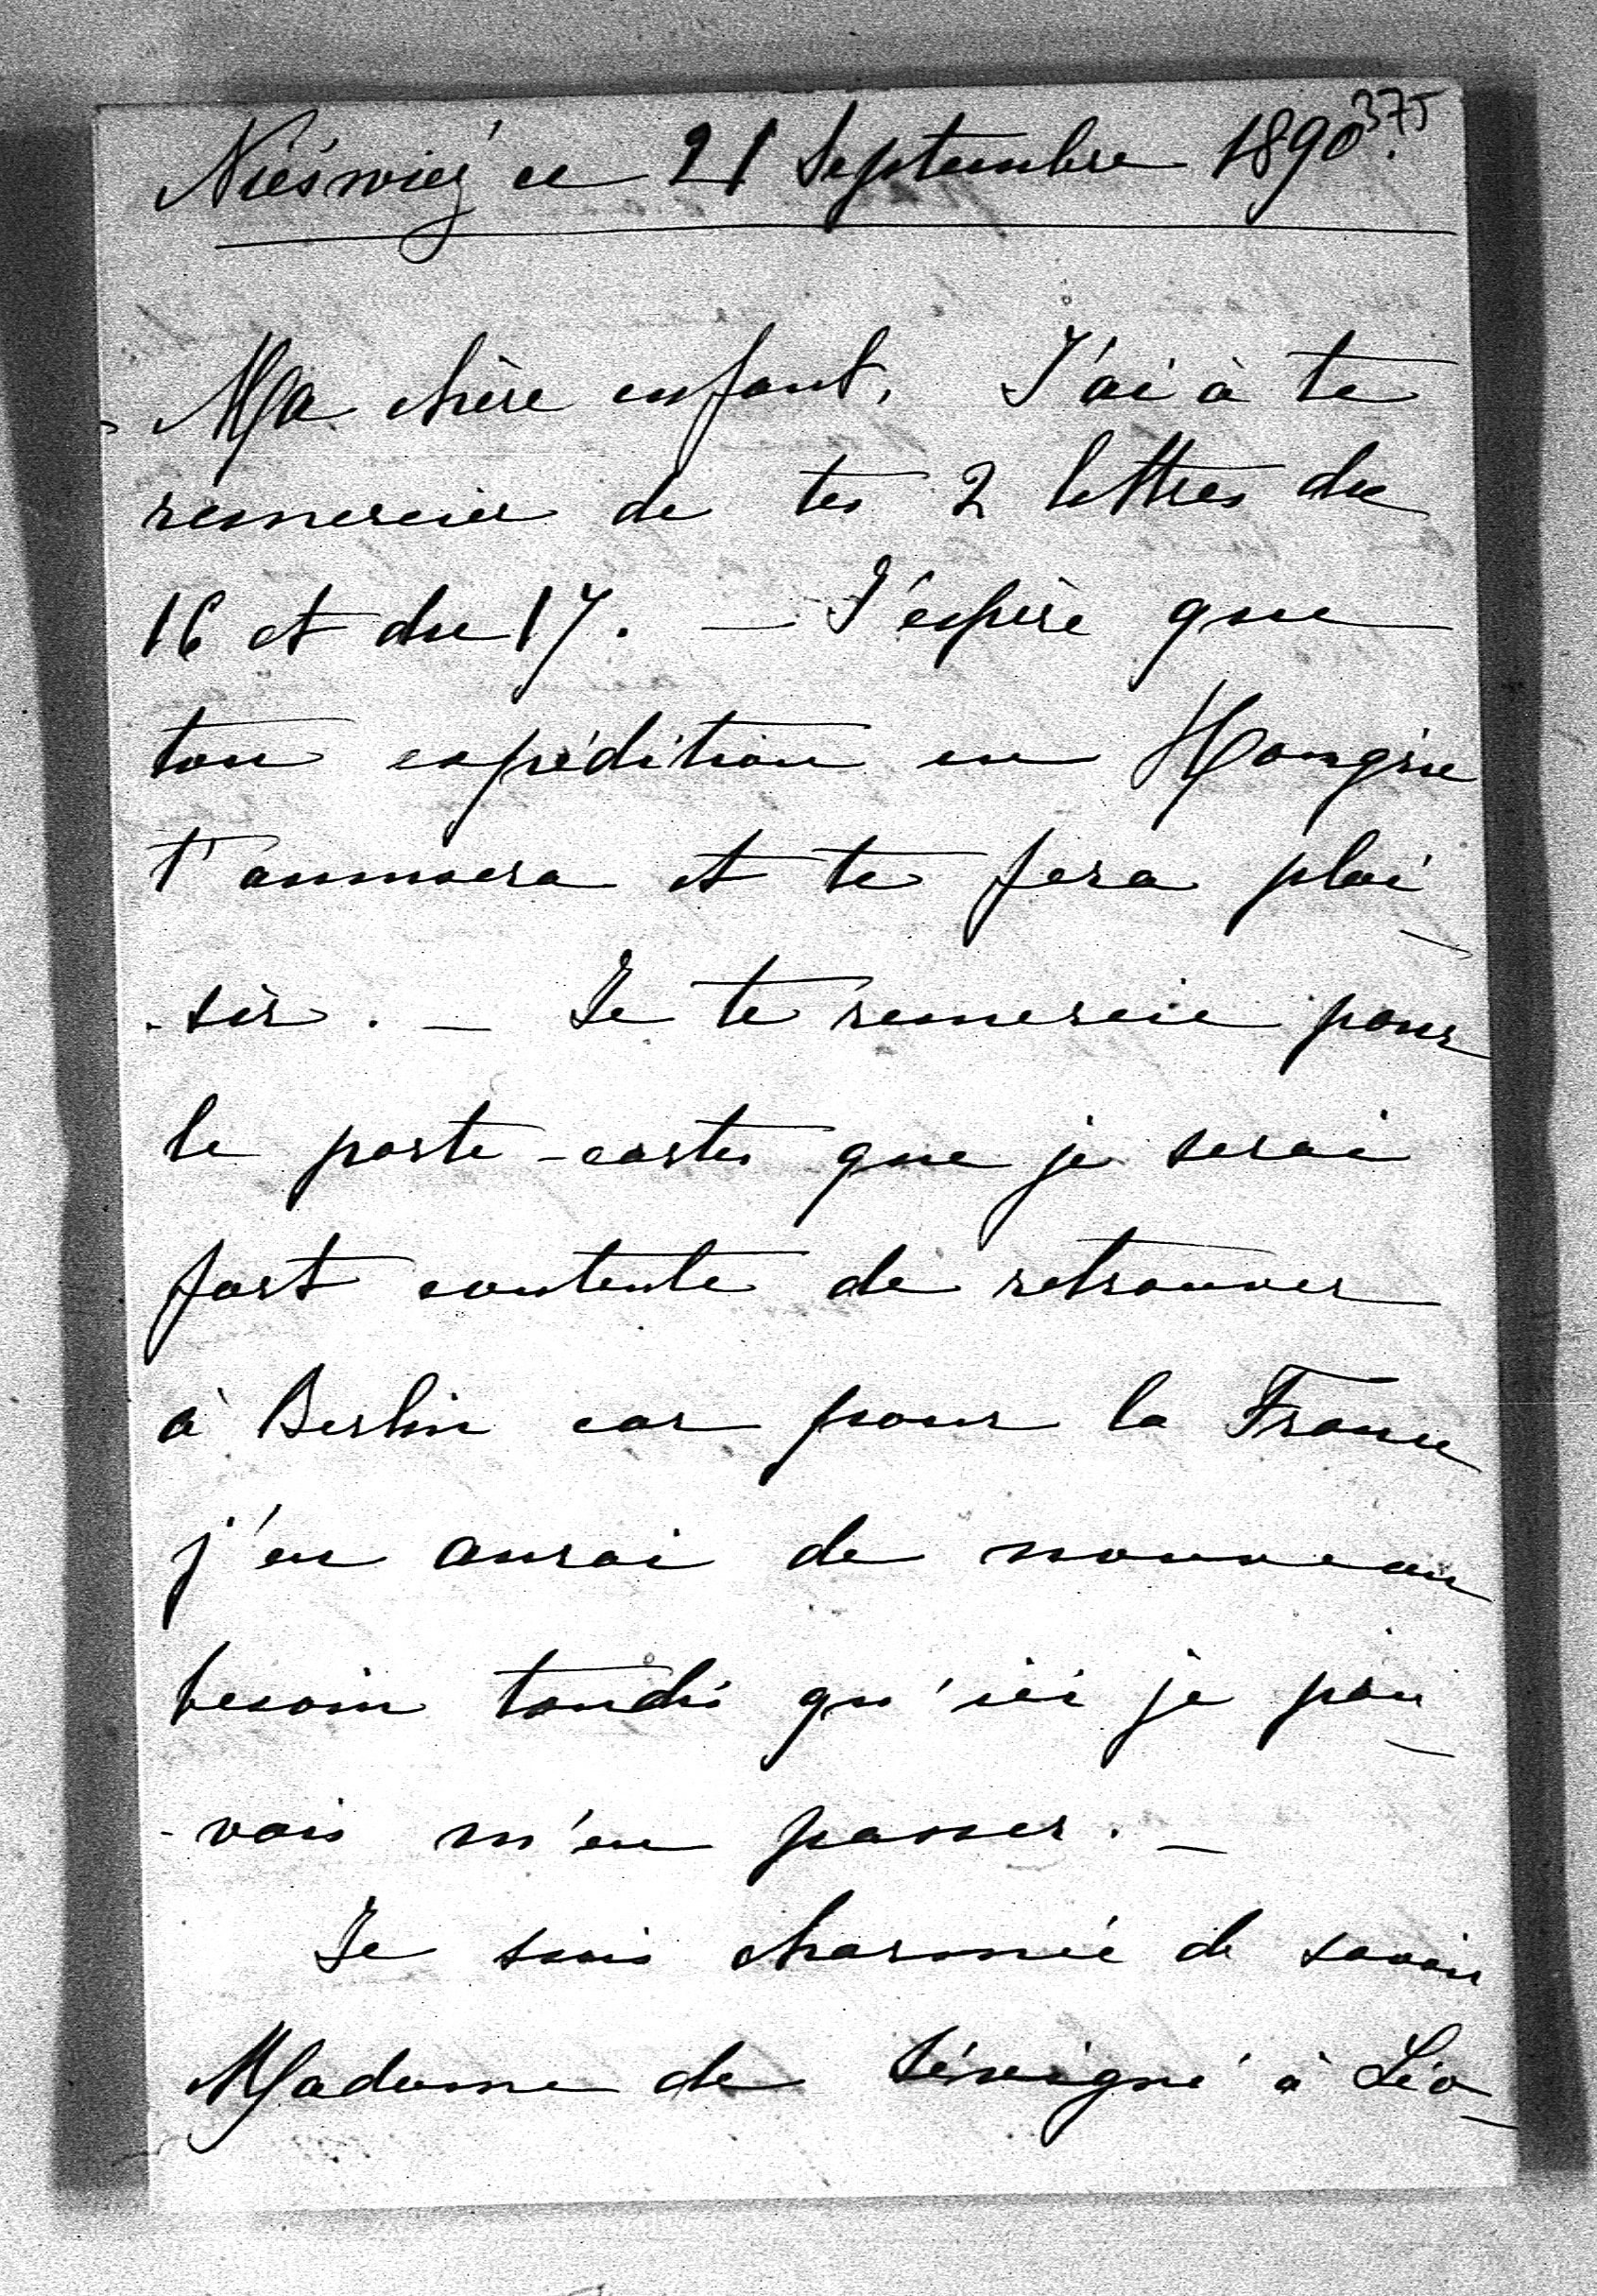 375
Nieświez ce 21 Septembre 1890.
Ma chère enfant, J'ai à te
remercier de tes 2 lettres du
16 et du 17. — J'espère que
ton expédition en Hongrie
t'amusera et te fera plai-
-sir. — Je te remercie pour
le porte-cartes que je serai
fort contente de retrouver
à Berlin car pour la France
j'en aurai de nouveau
besoin tandis qu'ici je pou-
-vais m'en passer. —
Je suis charmée de savoir
Madame de Sévigné à Léo-